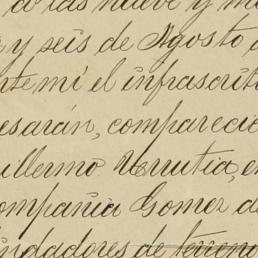 a las nueve y me
y seis de Agosto
nte mí el infrascrito
esarán, comparecie
uillermo Urrutia, e
ompañia Gomez de
undadores de terreno